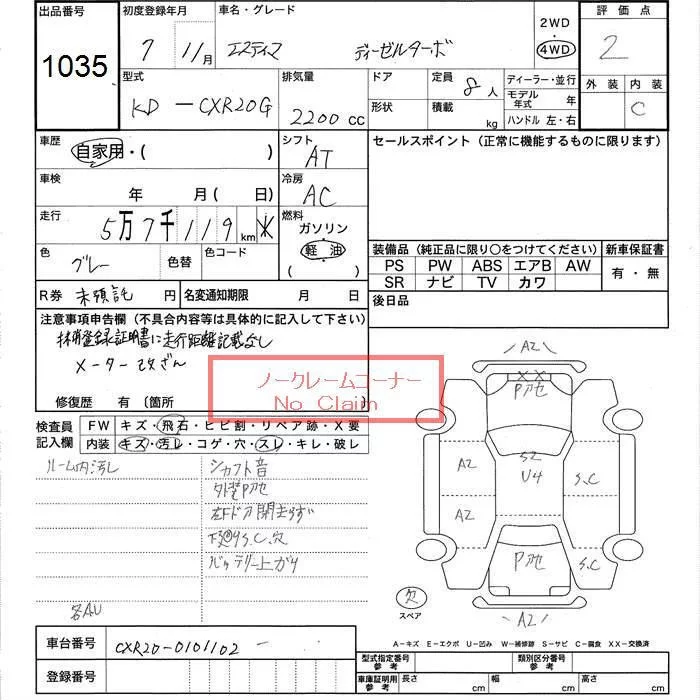 出品番号 初度登録年月 車名・グレード 2WD 評価点
1035 7 11月 エスティマ ディーゼルターボ 4WD 2
型式 排気量 ドア 定員 8人 ディーラー・並行 外装 内装
KD-CXR20G 2200cc 形状 積載 kg モデル年式 年 C
ハンドル 左・右
車歴 自家用・( ) シフト AT セールスポイント(正常に機能するものに限ります)
車検 年 月( 日) 冷房 AC
走行 5万7千119km 燃料 ガソリン
軽油
( )
色 グレー 色替 色コード 装備品(純正品に限り○をつけてください) 新車保証書
PS PW ABS エアB AW 有・無
SR ナビ TV カワ
R券 未預託 円 名変通知期限 月 日 後日品
注意事項申告欄(不具合内容等は具体的に記入して下さい)
抹消登録証明書に走行距離記載なし
メーター改ざん
ノークレームコーナー
No Claim
修復歴 有〔箇所 〕
検査員記入欄 FW キズ・飛石・ヒビ割・リペア跡・X要
内装 キズ・汚レ・コゲ・穴・スレ・キレ・破レ
ルーム内汚し シャフト音
外装P他
左Fドア閉まらず
下廻りS.C.穴
バッテリー上がり
各AU
A2
XX
P他
S2
A2 U4 S.C
A2 S.C
P他
A2
欠
スペア
A-キズ E-エクボ U-凹み W-補修跡 S-サビ C-腐食 XX-交換済
車台番号 CXR20-0101102
登録番号
型式指定番号 参考 類別区分番号 参考
車庫証明用 参考 長さ cm 幅 cm 高さ cm